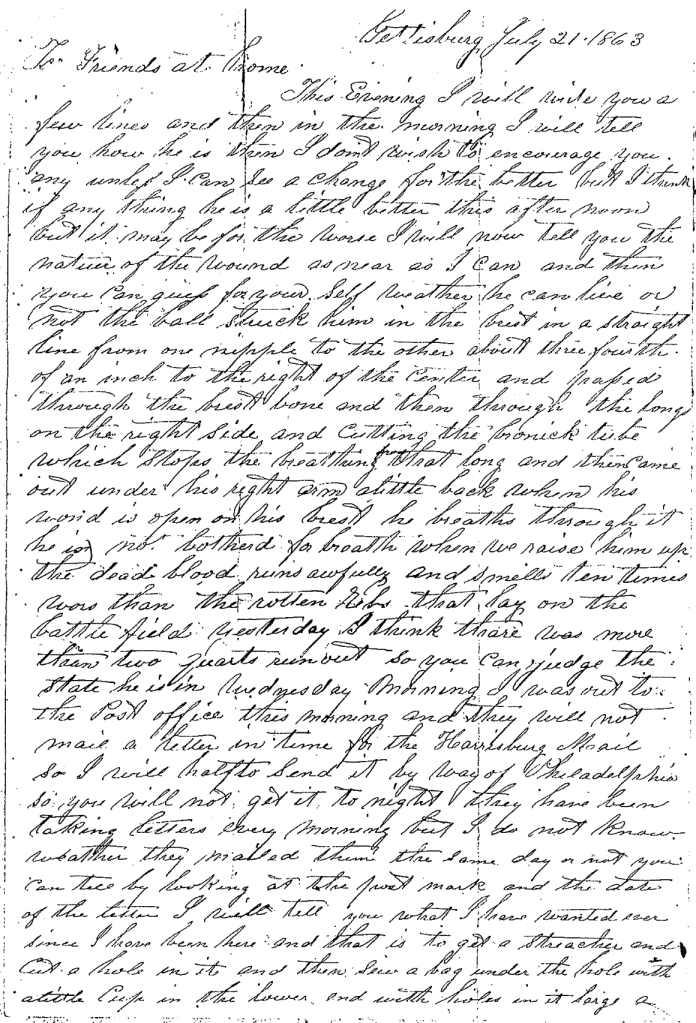 Gettisburg July 21-1863
To Friends at home
This Evening I will wide you a
few lines and then in the morning I will tell
you how he is then I dont wish to encourage you
any unless I can see a change for the better but I think
if any thing he is a little better this after noon
but it may be for the worse I will now tell you the
natuer of the wound as near as I can and then
you can guess for your self weather he can live or
not the ball struck him in the brest in a straight
line from one nipple to the other about three fourth
of an inch to the right of the center and passed
through the brest bone and then through the long
on the right side and cutting the bronick tube
which stops the breathing from that long and then came
out under his right arm alittle back when his
wond is open on his brest he breaths through it
he is not botherd for breath when we raise him up
the dead blood runs awfully and smells ten times
wors than the rotten Rebs that lay on the
battle field yesterday I think thare was more
than two quarts run out so you can judge the
state he is in Wednesday Morning I was out to
the Post office this morning and they will not
mail a letter in time for the Harrisburg Mail
so I will halfto send it by way of Philadelphia
so you will not get it to night they have been
taking letters every morning but I do not know
weather they mailed them the same day or not you
can tell by looking at the post mark and the date
of the letter I will tell you what I have wanted ever
since I have been here and that is to get a streacher and
cut a hole in it and then sew a bag under the hole with
alittle cup in the lower end with holes in it large a